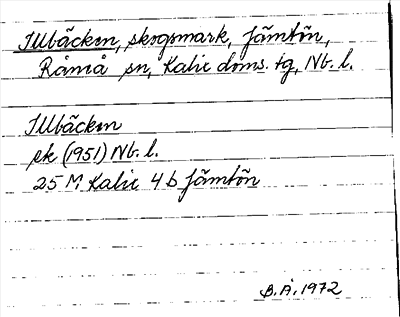 Illbäcken, skogsmark, Jämtön,
Råneå sn, Kalix doms. tg, Nb. l.
Illbäcken
sk (1951) Nb. l.
25 M Kalix 4 b Jämtön
B.Å. 1972